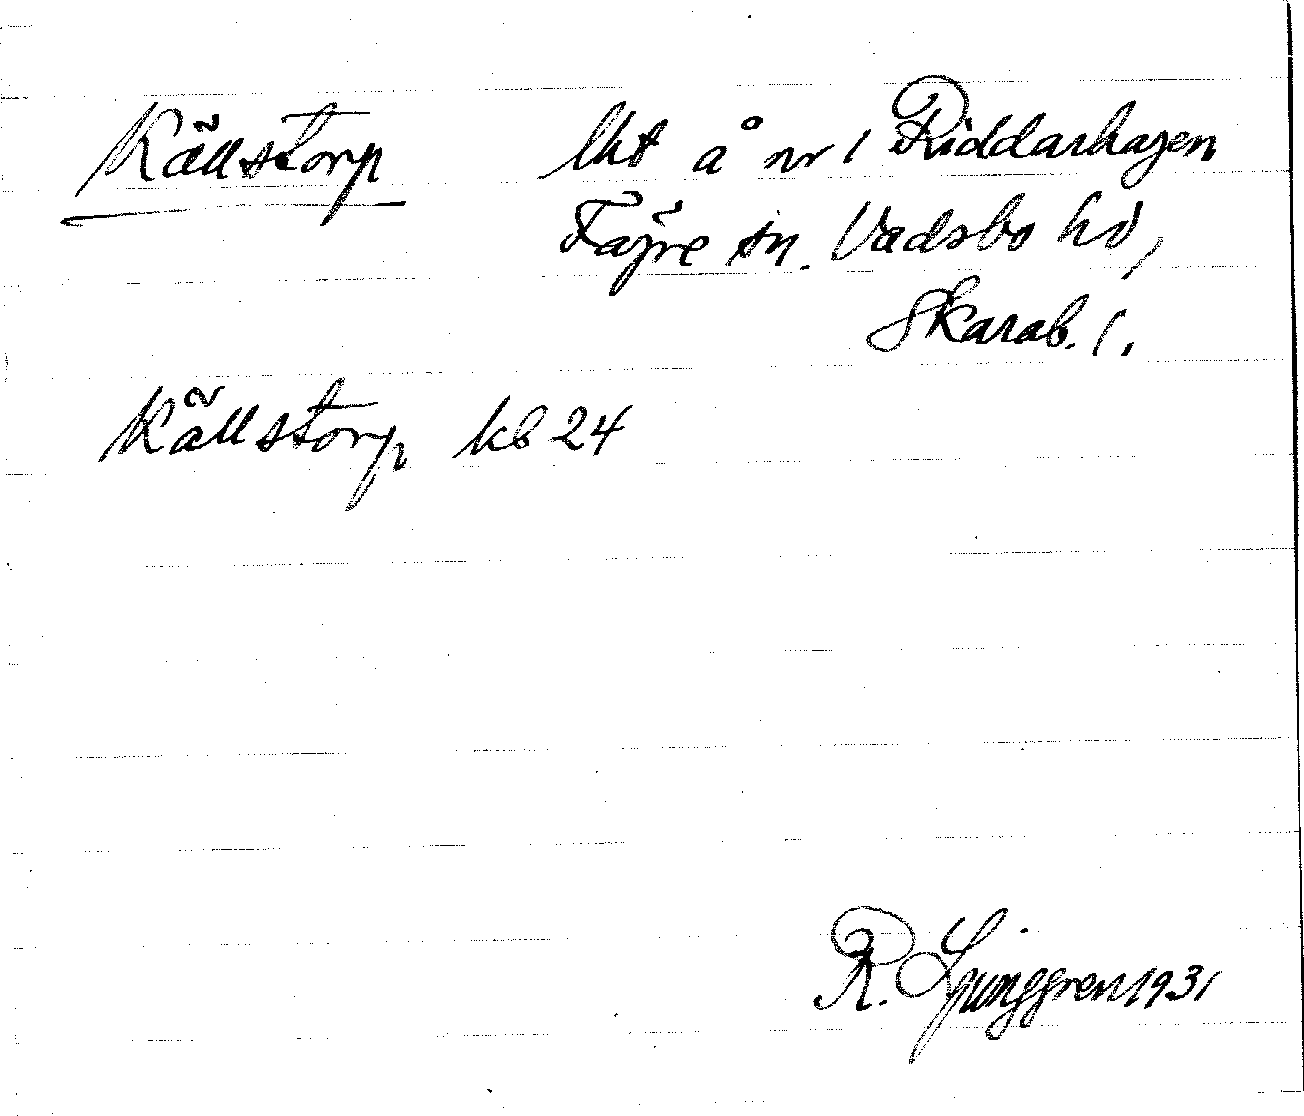 Källstorp lht å nr 1 Riddarhagen
Fägre sn. Vadsbo hd,
Skarab. l.
Källstorp kb 24
R. Ljunggren 1931